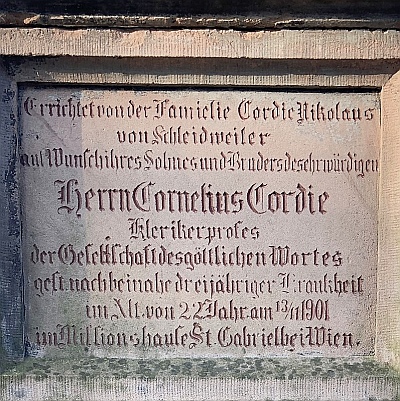 Errichtet von der Familie Cordie Nikolaus
von Schleidweiler
auf Wunsch ihres Sohnes und Bruders des ehrwürdigen
Herrn Cornelius Cordie
Klerikerprofes
der Gesellschaft des göttlichen Wortes
gest. nach beinahe dreijähriger Krankheit
im Alt. von 22 Jahr. am 13/1 1901
im Missionshause St. Gabriel bei Wien.